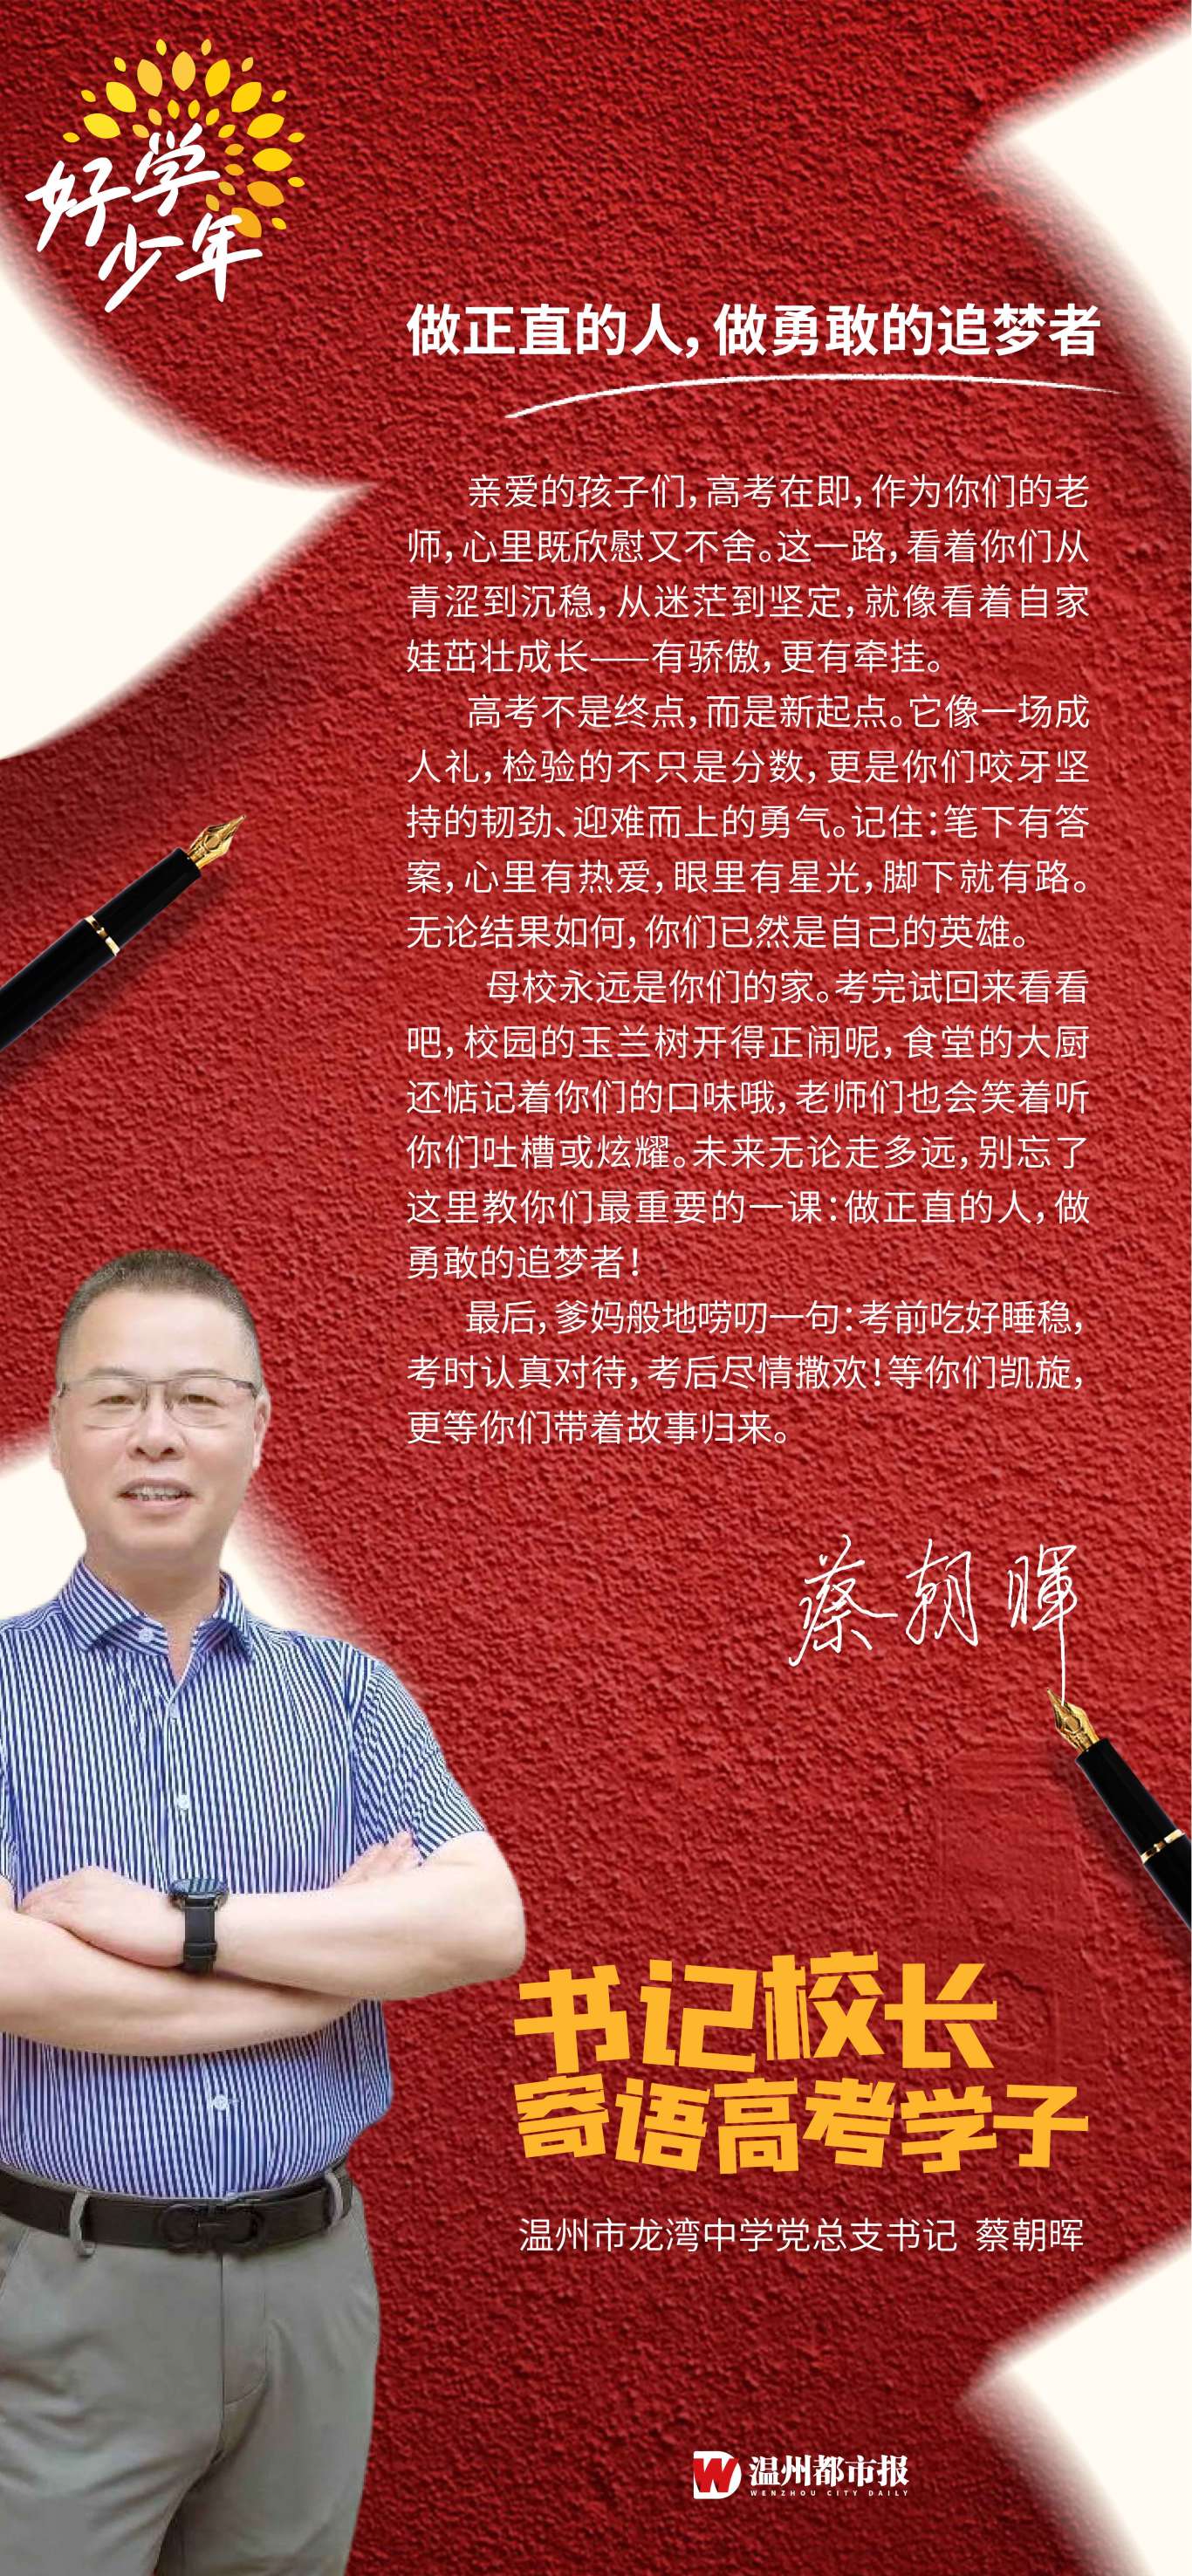 好学
少年
做正直的人，做勇敢的追梦者
亲爱的孩子们，高考在即，作为你们的老
师，心里既欣慰又不舍。这一路，看着你们从
青涩到沉稳，从迷茫到坚定，就像看着自家
娃茁壮成长——有骄傲，更有牵挂。
高考不是终点，而是新起点。它像一场成
人礼，检验的不只是分数，更是你们咬牙坚
持的韧劲、迎难而上的勇气。记住：笔下有答
案，心里有热爱，眼里有星光，脚下就有路。
无论结果如何，你们已然是自己的英雄。
母校永远是你们的家。考完试回来看看
吧，校园的玉兰树开得正闹呢，食堂的大厨
还惦记着你们的口味哦，老师们也会笑着听
你们吐槽或炫耀。未来无论走多远，别忘了
这里教你们最重要的一课：做正直的人，做
勇敢的追梦者！
最后，爹妈般地唠叨一句：考前吃好睡稳，
考时认真对待，考后尽情撒欢！等你们凯旋，
更等你们带着故事归来。
蔡朝晖
书记校长
寄语高考学子
温州市龙湾中学党总支书记 蔡朝晖
温州都市报
WENZHOU CITY DAILY